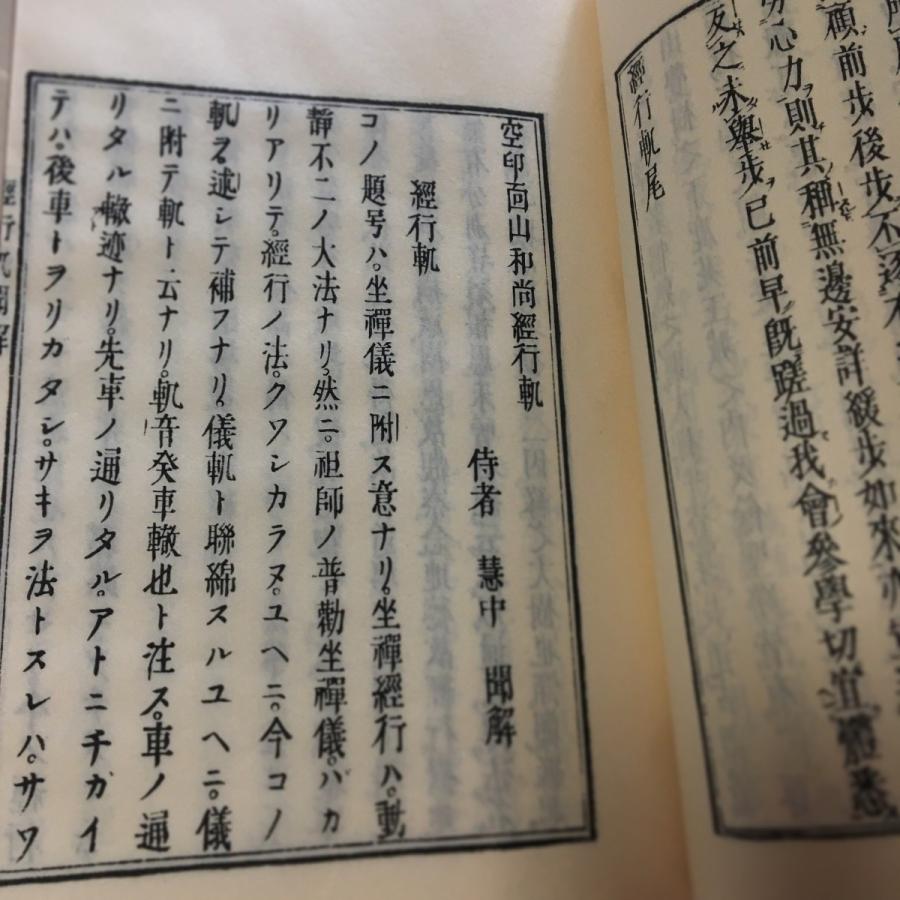 顧前步後步不
労心力則其稱無邊安詳緩步如來亦
友之未擧步已前早既蹉過我會參學切宜體悉
經行軌尾
空印面山和尚經行軌
侍者 慧中 聞解
經行軌
コノ題号ハ。坐禪儀ニ附ス意ナリ。坐禪經行ハ。動
靜不二ノ大法ナリ。然ニ。祖師ノ普勸坐禪儀。バカ
リアリテ。經行ノ法。クワシカラヌ。ユヘニ。今コノ
軌ヲ。述シテ補フナリ。儀軌ト聯綿スルユヘニ。儀
ニ附テ軌ト云ナリ。軌音癸車轍也ト注ス。車ノ通
リタル轍迹ナリ。先車ノ通リタル。アトニチガイ
テハ。後車トヲリカタシ。サキヲ法トスレハ。サワ
經行軌聞解